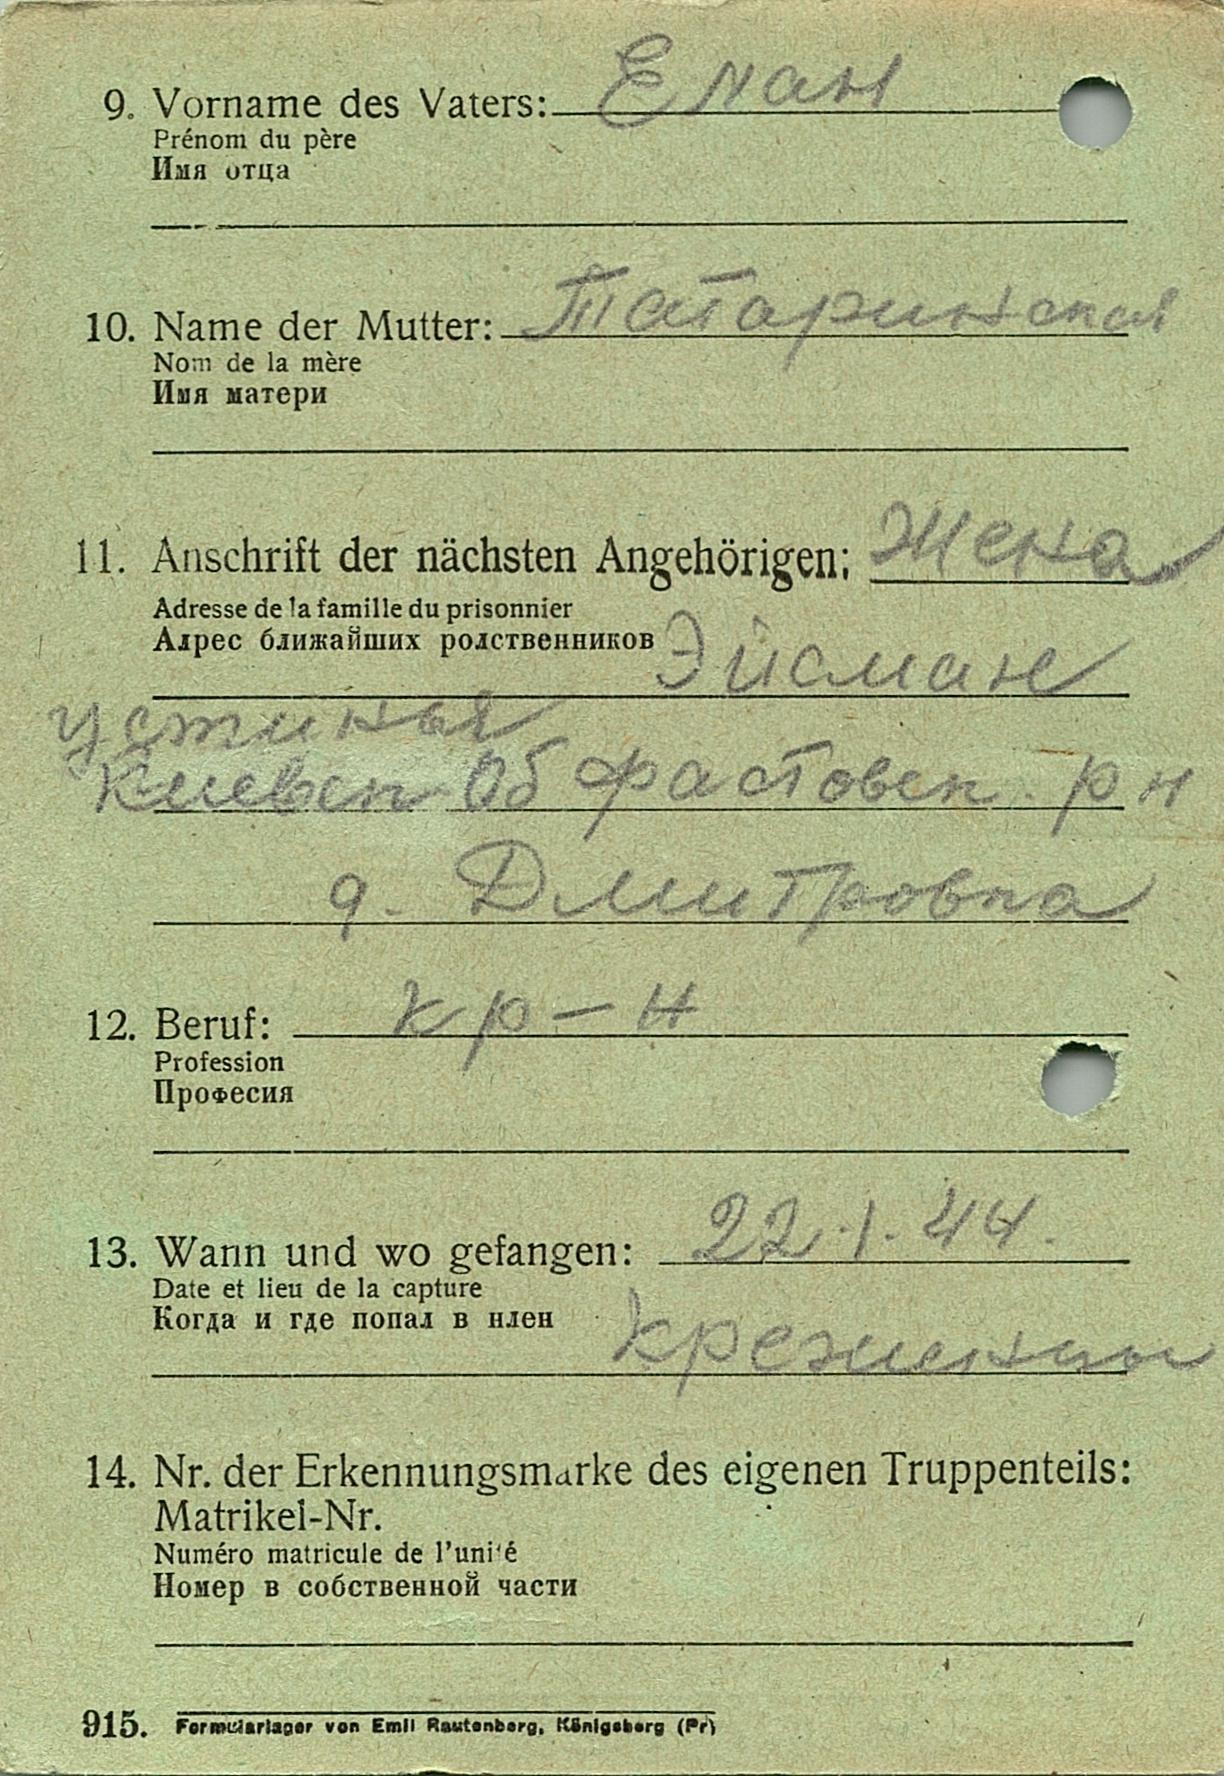 9. Vorname des Vaters: Еман
Prénom du père
Имя отца
10. Name der Mutter: Татаринская
Nom de la mère
Имя матери
11. Anschrift der nächsten Angehörigen: Жена
Adresse de la famille du prisonnier
Адрес ближайших родственников Эйсман
Устинья
Киевск Об фастовск рн
д. Дмитровка
12. Beruf: кр-н
Profession
Професия
13. Wann und wo gefangen: 22.1.44.
Date et lieu de la capture
Когда и где попал в нлен
14. Nr. der Erkennungsmarke des eigenen Truppenteils:
Matrikel-Nr.
Numéro matricule de l'unité
Номер в собственной части
915. Formularlager von Emil Rautenberg, Königsberg (Pr)